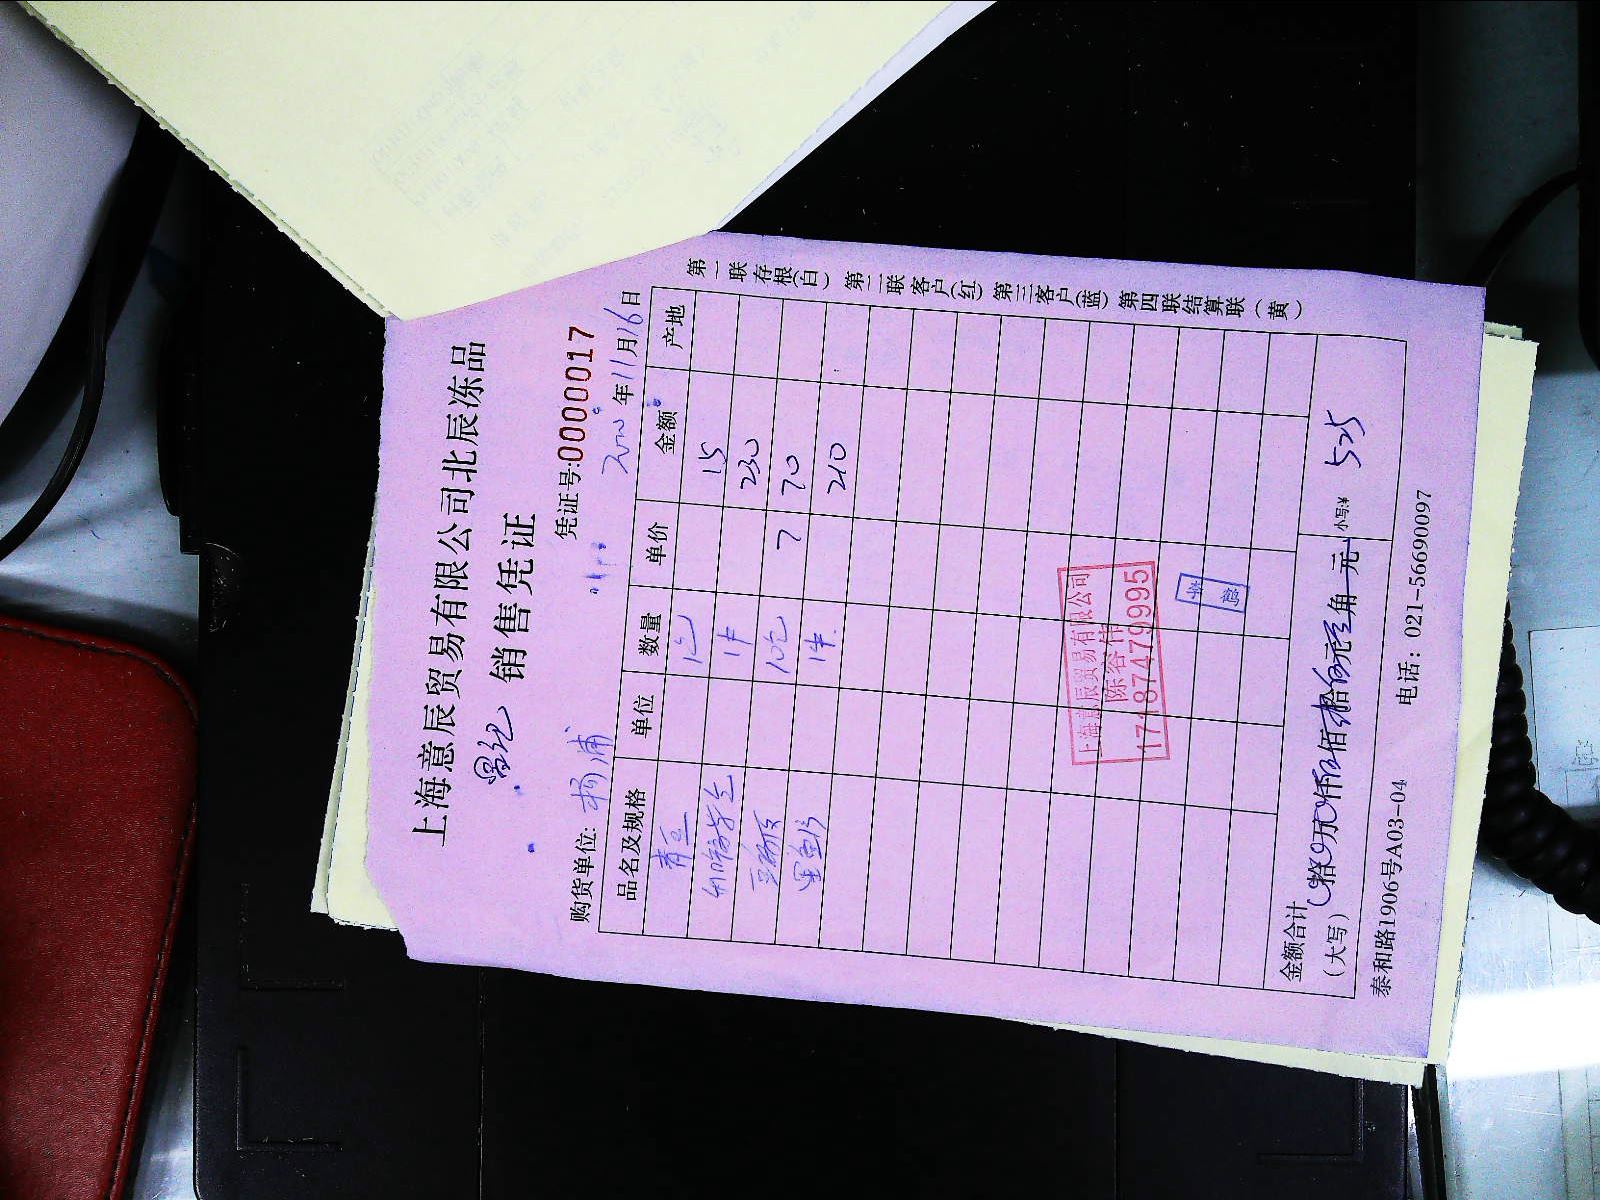 上海意辰贸易有限公司北辰冻品
销售凭证
凭证号:0000017
购货单位: 杨浦 年11月16日
品名及规格 单位 数量 单价 金额 产地
青豆 1包 15
1件 230
10包 7 70
黑鱼片 1件 210
上海意辰贸易有限公司
陈容伟
17187479995
金额合计
(大写) 拾 万 仟伍佰 拾伍元 角 元 小写:¥ 525
泰和路1906号A03-04 电话: 021-56690097
第一联存根(白) 第二联客户(红) 第三客户(蓝) 第四联结算联(黄)